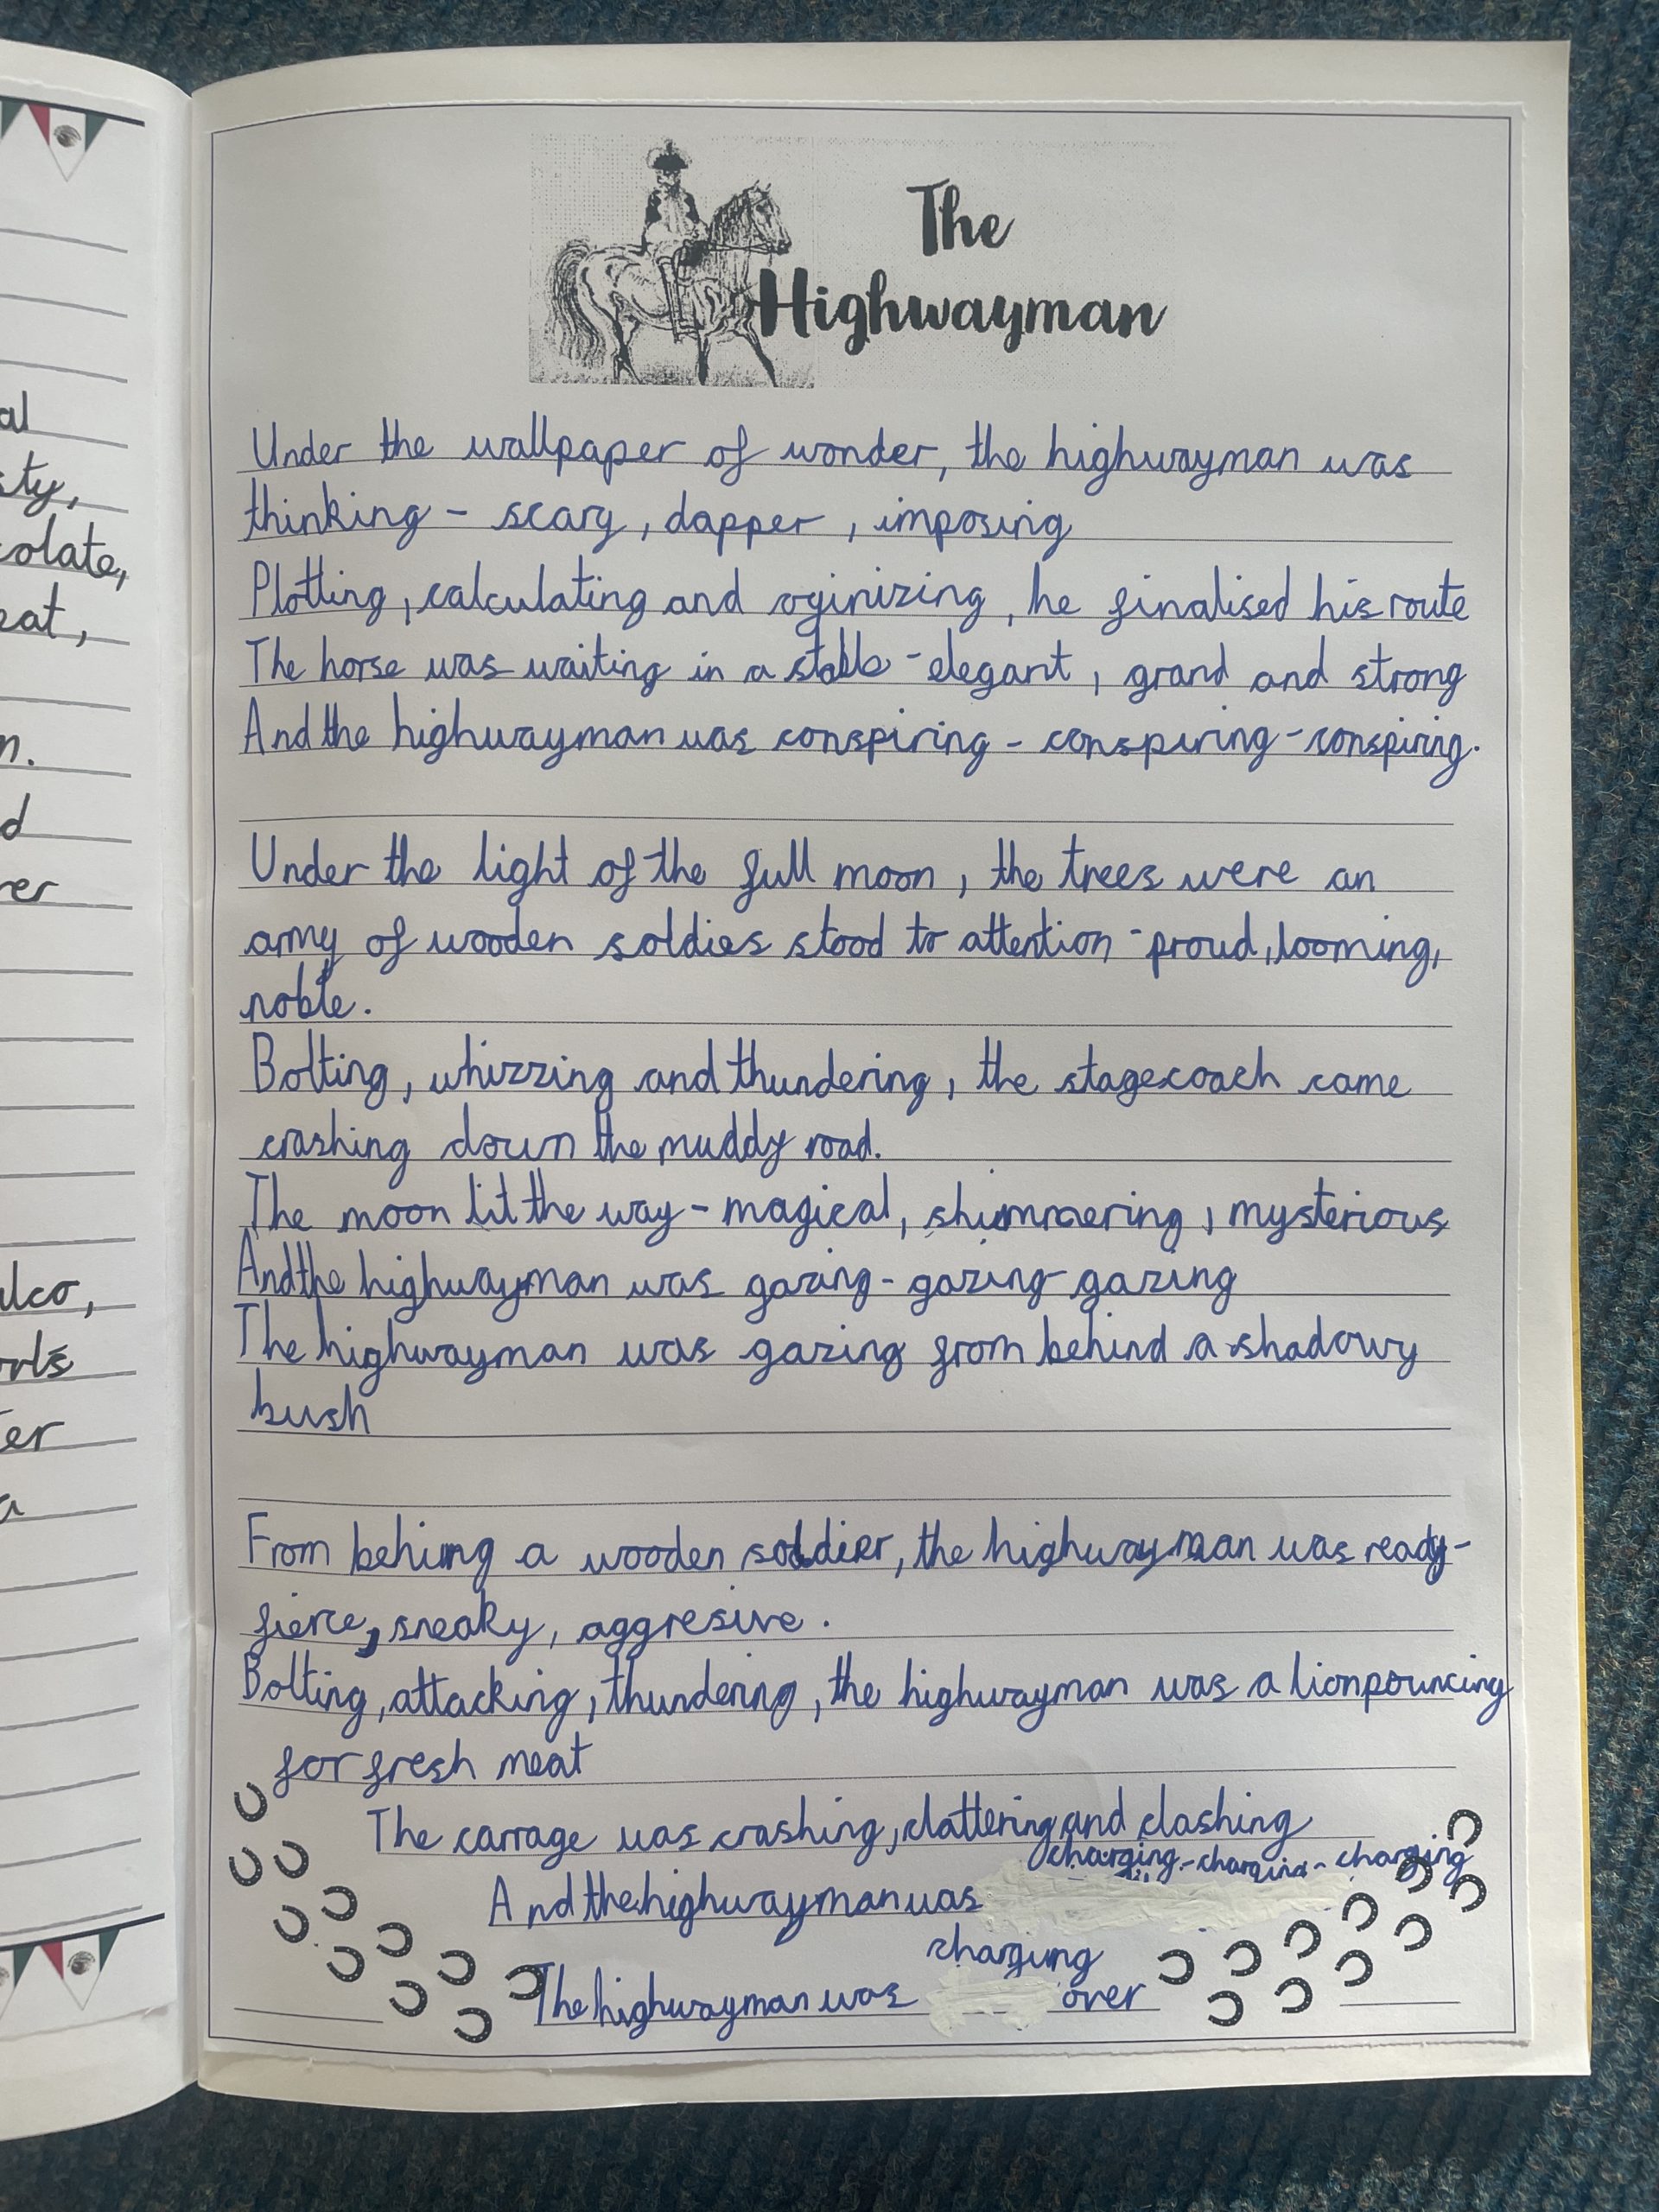 The
Highwayman
Under the wallpaper of wonder, the highwayman was
thinking - scary, dapper, imposing
Plotting, calculating and oginizing, he finalised his route
The horse was waiting in a stable - elegant, grand and strong
And the highwayman was conspiring - conspiring - conspiring.
Under the light of the full moon, the trees were an
army of wooden soldies stood to attention - proud, looming,
noble.
Bolting, whizzing and thundering, the stagecoach came
crashing down the muddy road.
The moon lit the way - magical, shimmering, mysterious
And the highwayman was gazing - gazing - gazing
The highwayman was gazing from behind a shadowy
bush
From behing a wooden soldier, the highwayman was ready -
fierce, sneaky, aggresive.
Bolting, attacking, thundering, the highwayman was a lion pouncing
for fresh meat
The carrage was crashing, clattering and clashing
charging - charging - charging
And the highwayman was
charging
The highwayman was over
al
sty,
colate,
eat,
n.
d
rer
ulco,
er
a